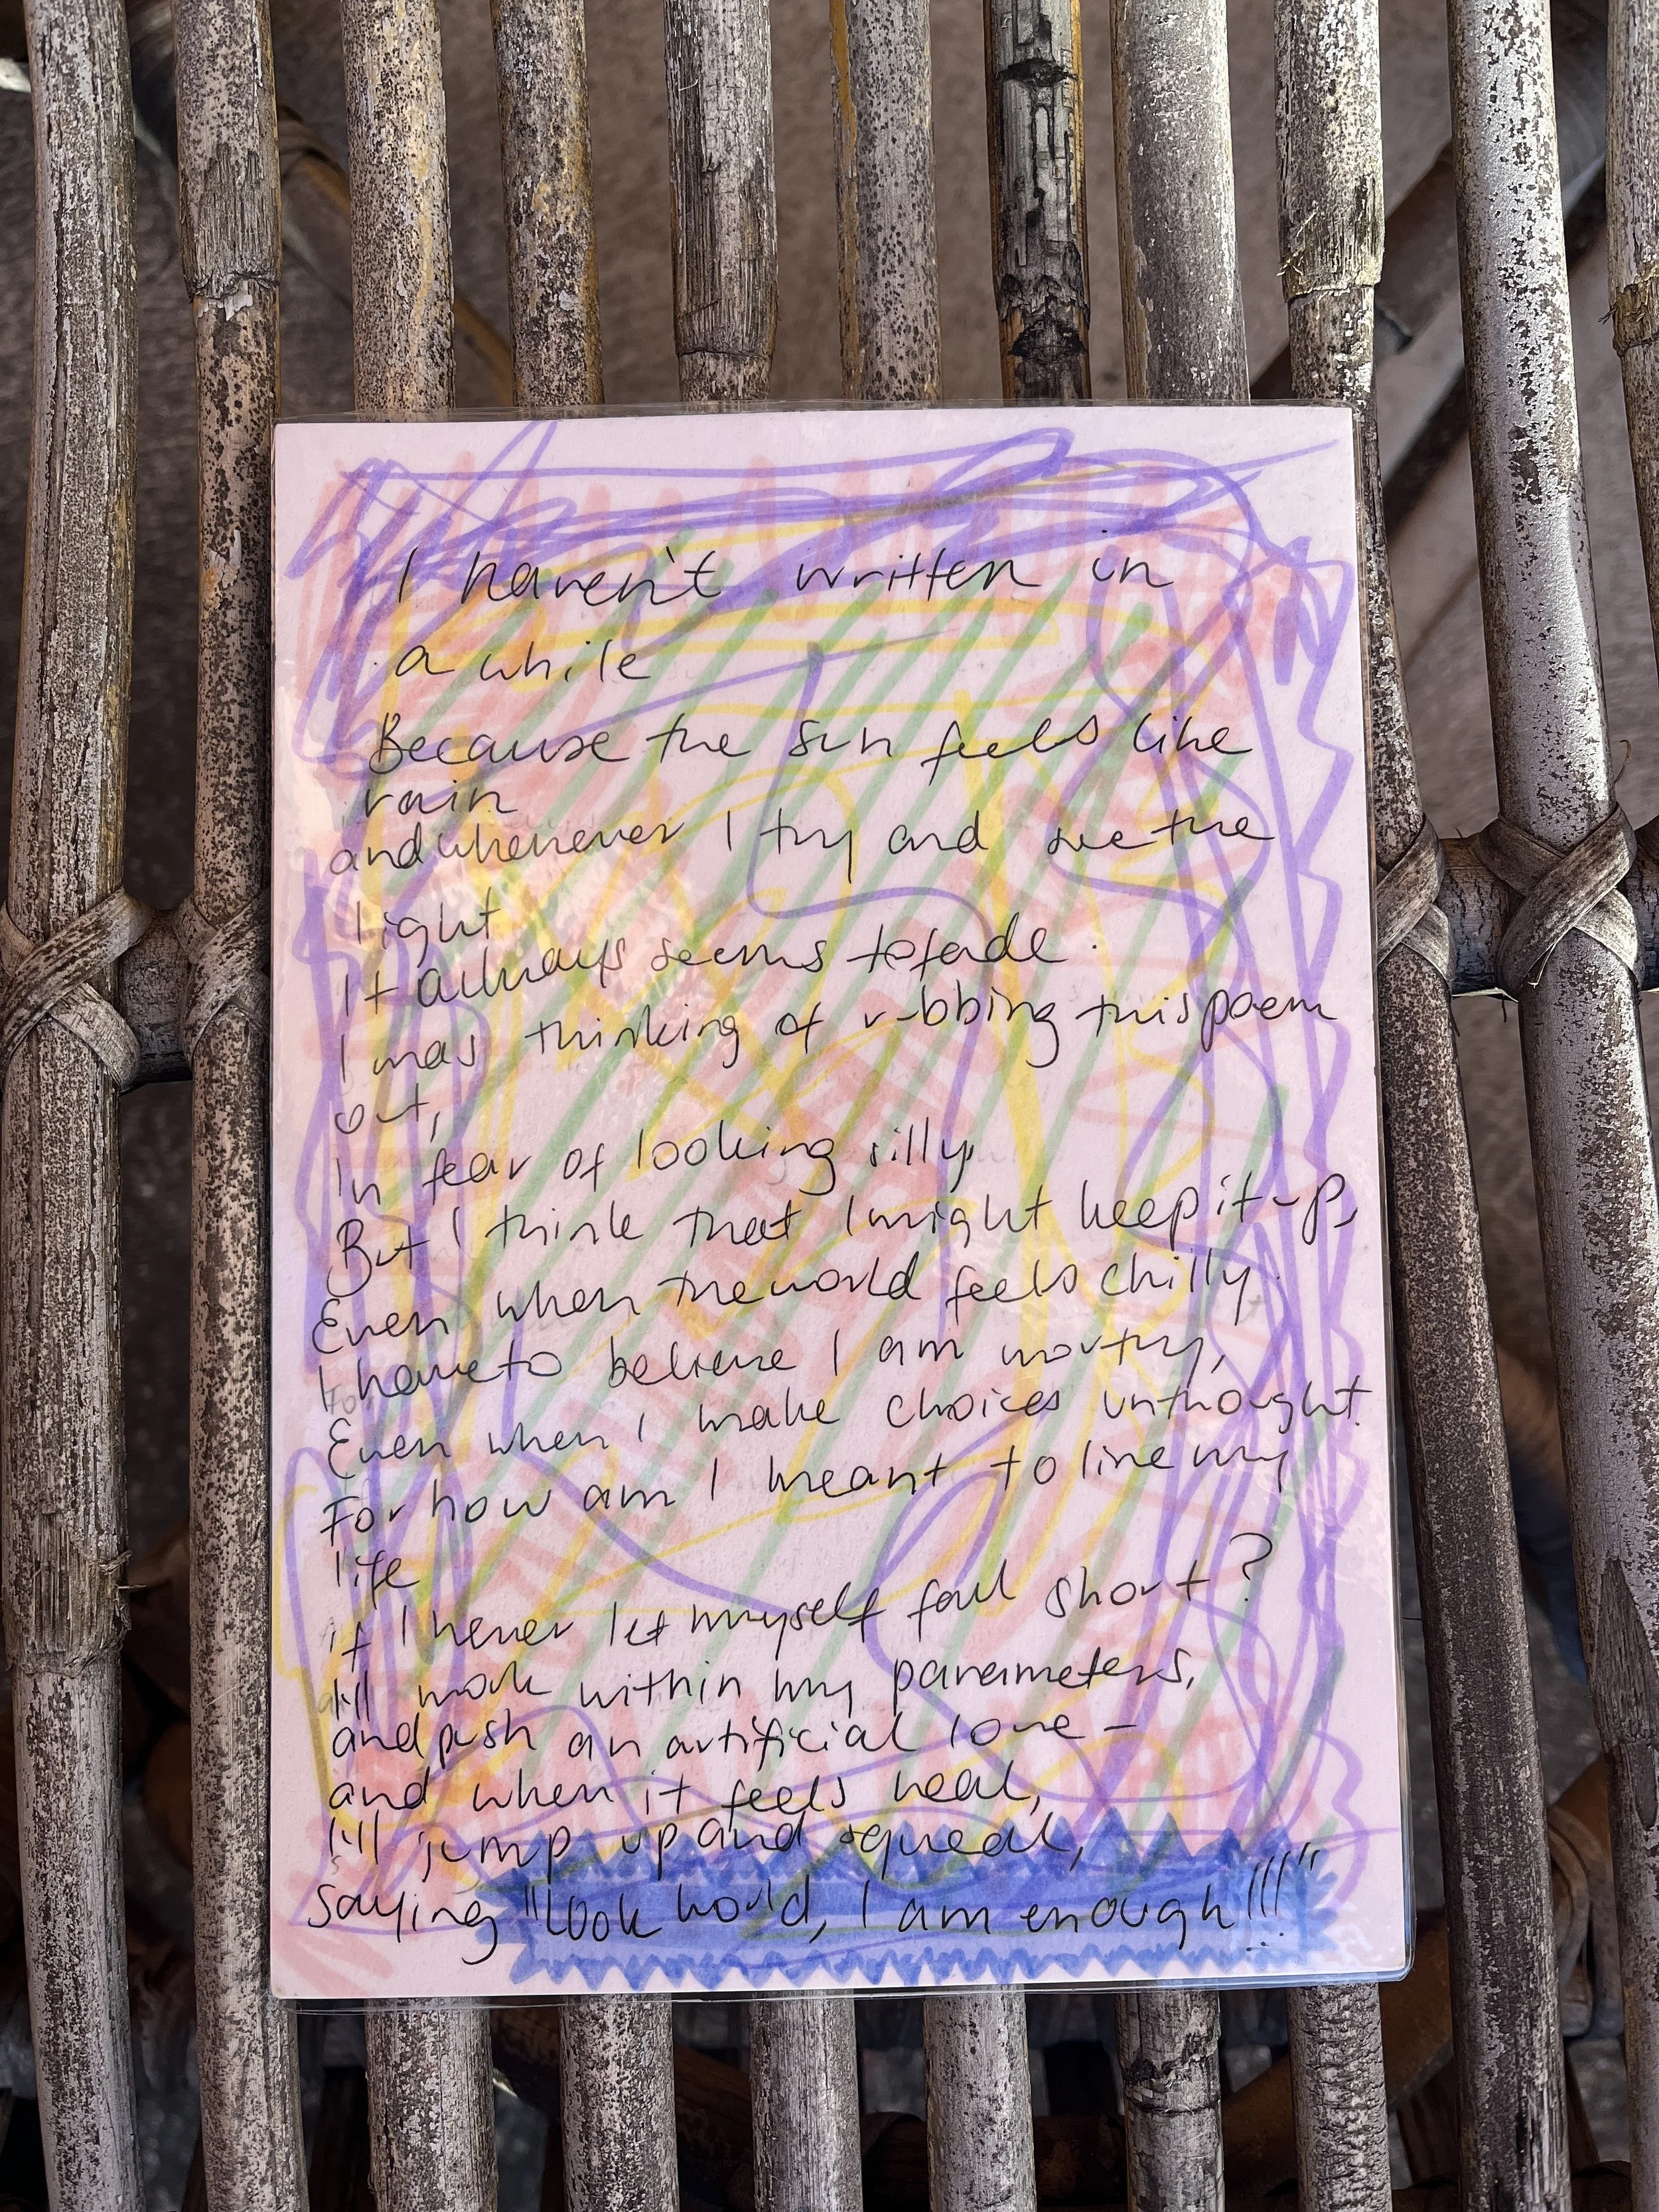 I haven't written in
a while
Because the sun feels like
rain
and whenever I try and see the
light
It always seems to fade.
I was thinking of rubbing this poem
out,
In fear of looking silly,
But I think that I might keep it up,
Even when the world feels chilly.
I have to believe I am worthy,
Even when I make choices unthought.
For how am I meant to live my
life
if I never let myself fall short?
I'll work within my parameters,
and push an artificial love -
and when it feels real,
I'll jump up and squeal,
Saying "look world, I am enough!!!"